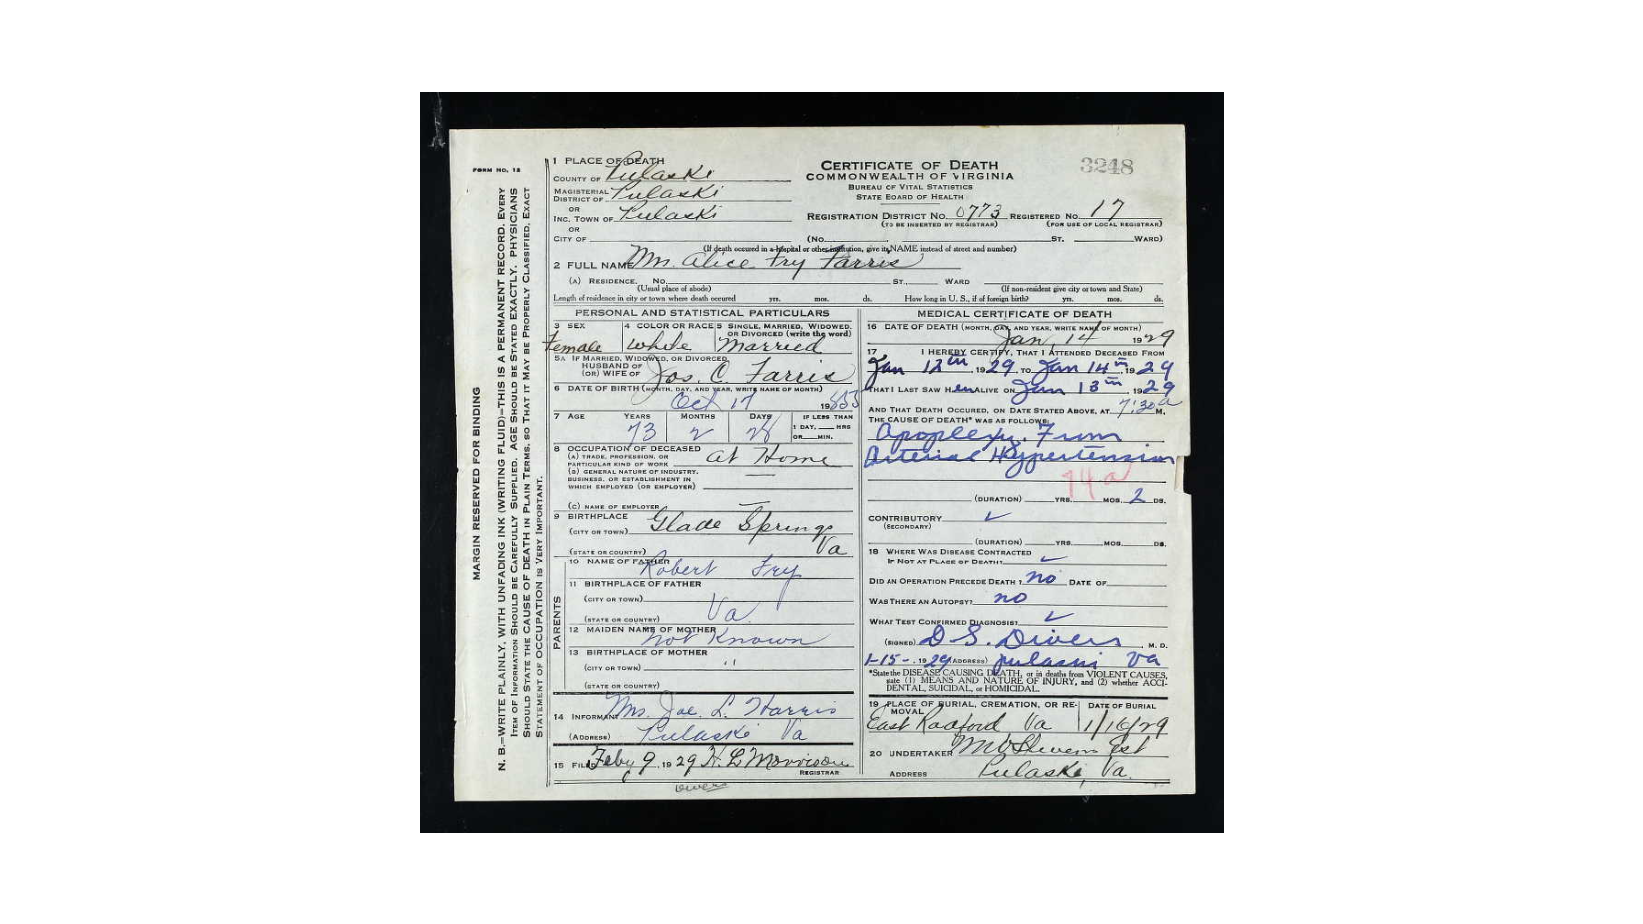 FORM NO. 12
MARGIN RESERVED FOR BINDING
N. B.—WRITE PLAINLY, WITH UNFADING INK (WRITING FLUID)—THIS IS A PERMANENT RECORD. EVERY
ITEM OF INFORMATION SHOULD BE CAREFULLY SUPPLIED. AGE SHOULD BE STATED EXACTLY. PHYSICIANS
SHOULD STATE THE CAUSE OF DEATH IN PLAIN TERMS, SO THAT IT MAY BE PROPERLY CLASSIFIED. EXACT
STATEMENT OF OCCUPATION IS VERY IMPORTANT.
1 PLACE OF DEATH
COUNTY OF Pulaski
MAGISTERIAL DISTRICT OF Pulaski
OR
INC. TOWN OF Pulaski
OR
CITY OF
CERTIFICATE OF DEATH
COMMONWEALTH OF VIRGINIA
BUREAU OF VITAL STATISTICS
STATE BOARD OF HEALTH
3248
REGISTRATION DISTRICT NO. 0773 REGISTERED NO. 17
(TO BE INSERTED BY REGISTRAR) (FOR USE OF LOCAL REGISTRAR)
(NO. ST. WARD)
(If death occured in a hospital or other institution, give its NAME instead of street and number)
2 FULL NAME Mrs. Alice Fry Farris
(A) RESIDENCE. NO. ST., WARD
(Usual place of abode) (If non-resident give city or town and State)
Length of residence in city or town where death occured yrs. mos. ds. How long in U. S., if of foreign birth? yrs. mos. ds.
PERSONAL AND STATISTICAL PARTICULARS
3 SEX Female
4 COLOR OR RACE White
5 SINGLE, MARRIED, WIDOWED, OR DIVORCED (write the word) Married
5A IF MARRIED, WIDOWED, OR DIVORCED
HUSBAND OF
(OR) WIFE OF Jos. C. Farris
6 DATE OF BIRTH (MONTH, DAY, AND YEAR, WRITE NAME OF MONTH)
Oct 17
7 AGE YEARS MONTHS DAYS IF LESS THAN
73 2 28 1 DAY, HRS
OR MIN.
8 OCCUPATION OF DECEASED
(A) TRADE, PROFESSION, OR
PARTICULAR KIND OF WORK At Home
(B) GENERAL NATURE OF INDUSTRY,
BUSINESS, OR ESTABLISHMENT IN
WHICH EMPLOYED (OR EMPLOYER)
(C) NAME OF EMPLOYER
9 BIRTHPLACE
(CITY OR TOWN) Glade Springs
(STATE OR COUNTRY) Va
PARENTS
10 NAME OF FATHER Robert Fry
11 BIRTHPLACE OF FATHER
(CITY OR TOWN)
(STATE OR COUNTRY) Va.
12 MAIDEN NAME OF MOTHER not Known
13 BIRTHPLACE OF MOTHER
(CITY OR TOWN) ''
(STATE OR COUNTRY)
14 INFORMANT Mrs. Joe. L. Harris
(ADDRESS) Pulaski Va
15 FILED Feby 9, 1929 H. L. Morrison
REGISTRAR
Divers
MEDICAL CERTIFICATE OF DEATH
16 DATE OF DEATH (MONTH, DAY, AND YEAR, WRITE NAME OF MONTH)
Jan, 14 1929
17 I HEREBY CERTIFY, THAT I ATTENDED DECEASED FROM
Jan 12th, 1929, TO Jan 14th, 1929
THAT I LAST SAW HER ALIVE ON Jan 13th, 1929
AND THAT DEATH OCCURED, ON DATE STATED ABOVE, AT 7:30 a M.
THE CAUSE OF DEATH* WAS AS FOLLOWS:
Apoplexy. From
Arterial Hypertension
74a
(DURATION) YRS. MOS. 2 DS.
CONTRIBUTORY ✓
(SECONDARY)
(DURATION) YRS. MOS. DS.
18 WHERE WAS DISEASE CONTRACTED
IF NOT AT PLACE OF DEATH? ✓
DID AN OPERATION PRECEDE DEATH? no DATE OF
WAS THERE AN AUTOPSY? no
WHAT TEST CONFIRMED DIAGNOSIS? ✓
(SIGNED) D. S. Divers, M. D.
1-15-, 1929 (ADDRESS) Pulaski Va
*State the DISEASE CAUSING DEATH, or in deaths from VIOLENT CAUSES,
state (1) MEANS AND NATURE OF INJURY, and (2) whether ACCI-
DENTAL, SUICIDAL, or HOMICIDAL.
19 PLACE OF BURIAL, CREMATION, OR RE-
MOVAL DATE OF BURIAL
East Radford Va 1/16/29
20 UNDERTAKER Stevens Est
ADDRESS Pulaski, Va.